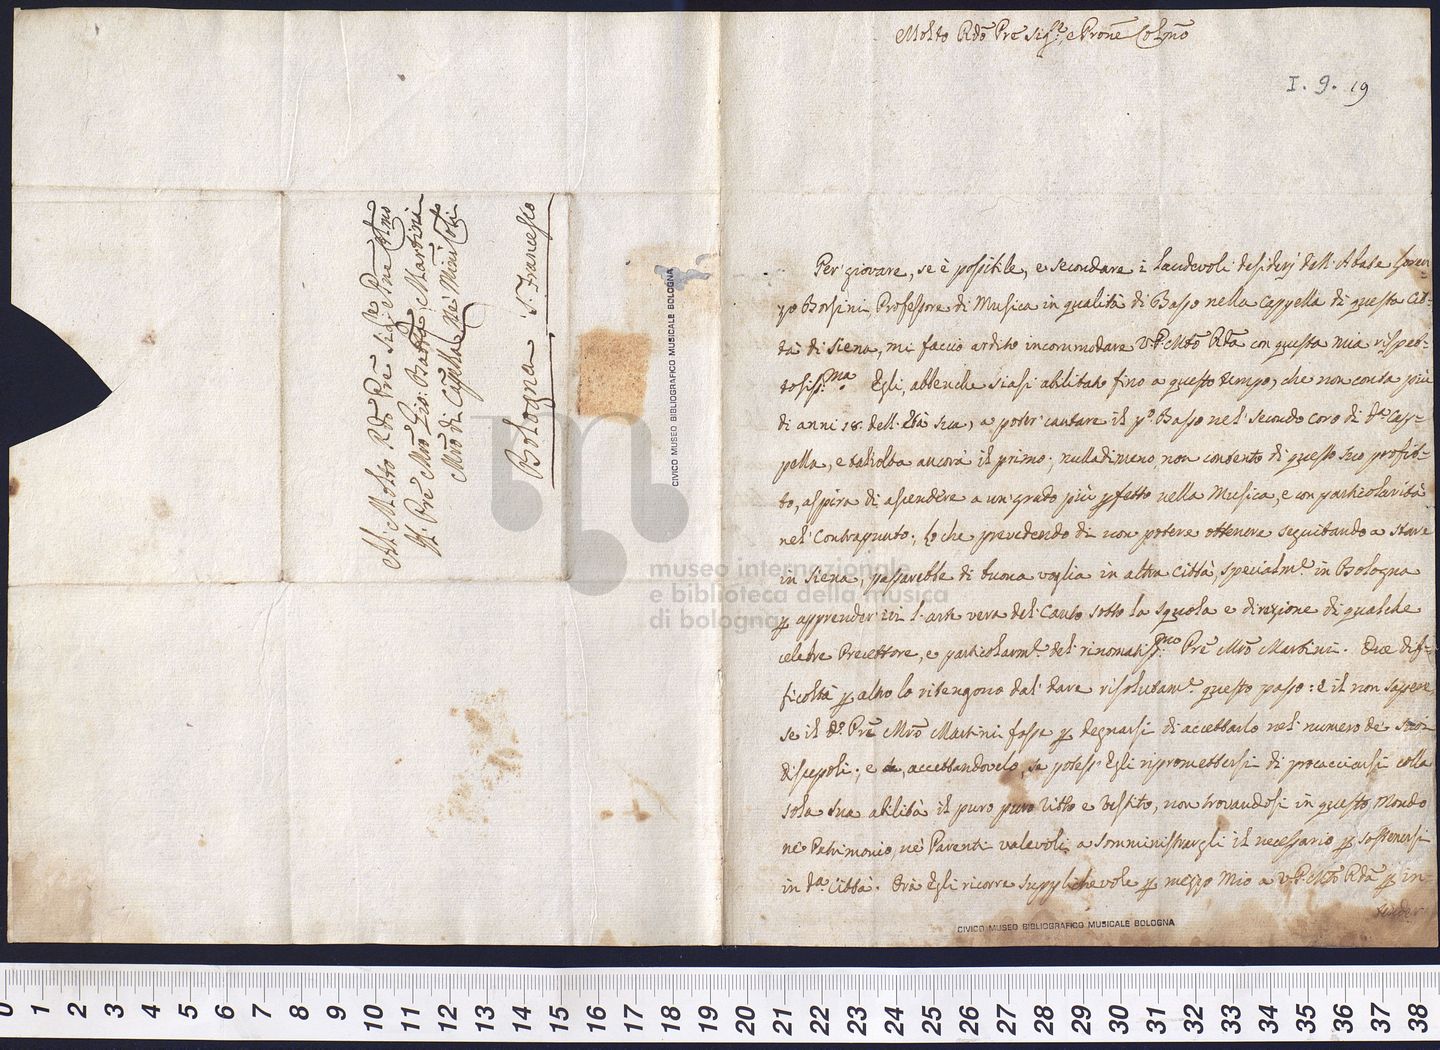 Molto Rdo Pre Sigre, e Prone Colmo
I. 9. 19
Per giovare, se è possibile, e secondare i laudevoli desiderj dell'Abate Loren-
zo Borsini, Professore di Musica in qualità di Basso nella Cappella di questa Cit-
tà di Siena, mi faccio ardito incommodare V. P. Mto Rda con questa mia rispet-
tosissma. Egli, abbenche siasi abilitato fino a questo tempo, che non conta più
di anni 18. dell'Età sua, a poter cantare il po Basso nel secondo coro di da Cap-
pella, e talvolta ancora il primo; nulladimeno, non contento di questo suo profit-
to, aspira di ascendere a un grado più pfetto nella Musica, e con particolarità
nel Contrapunto; Lo che prevedendo di non potere ottenere seguitando a stare
in Siena, passarebbe di buona voglia in altra Città, specialme in Bologna
p apprender ivi l'arte vera del Canto sotto la squola e direzione di qualche
celebre Precettore, e particolarme del rinomatissmo Pre Mro Martini. Due dif-
ficoltà p altro lo ritengono dal dare risolutame questo passo: e il non sapere,
se il do Pre Mro Martini fosse p degnarsi di accettarlo nel numero de' suoi
discepoli; e accettandovelo, se potess'Egli ripromettersi di procacciarsi colla
sola sua abilità il puro puro Vitto e Vestito, non trovandosi in questo Mondo
nè Patrimonio, nè Parenti valevoli a somministrargli il necessario p sostenersi
in da Città. Ora Egli ricorre supplichevole p mezzo mio a V. P. Mto Rda p in-
tender
Al Molto Rdo Pre Sigre Prne Colmo
Il Pre Mro Gio: Batta Martini
Mro di Cappella ne' Minri Conli
Bologna S. Francesco
CIVICO MUSEO BIBLIOGRAFICO MUSICALE BOLOGNA
CIVICO MUSEO BIBLIOGRAFICO MUSICALE BOLOGNA
museo internazionale
e biblioteca della musica
di bologna
0 1 2 3 4 5 6 7 8 9 10 11 12 13 14 15 16 17 18 19 20 21 22 23 24 25 26 27 28 29 30 31 32 33 34 35 36 37 38